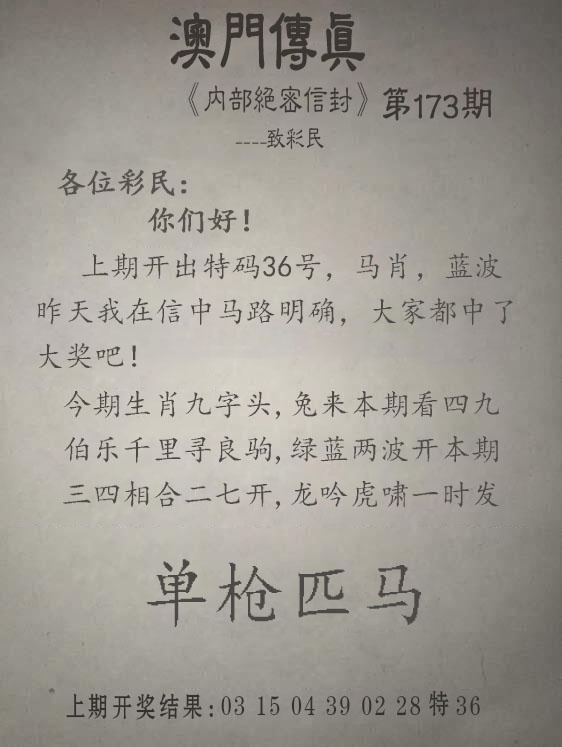 澳門傳眞
《内部絕密信封》第173期
----致彩民
各位彩民：
你们好！
上期开出特码36号，马肖，蓝波
昨天我在信中马路明确，大家都中了
大奖吧！
今期生肖九字头,兔来本期看四九
伯乐千里寻良驹,绿蓝两波开本期
三四相合二七开,龙吟虎啸一时发
单枪匹马
上期开奖结果:03 15 04 39 02 28 特36